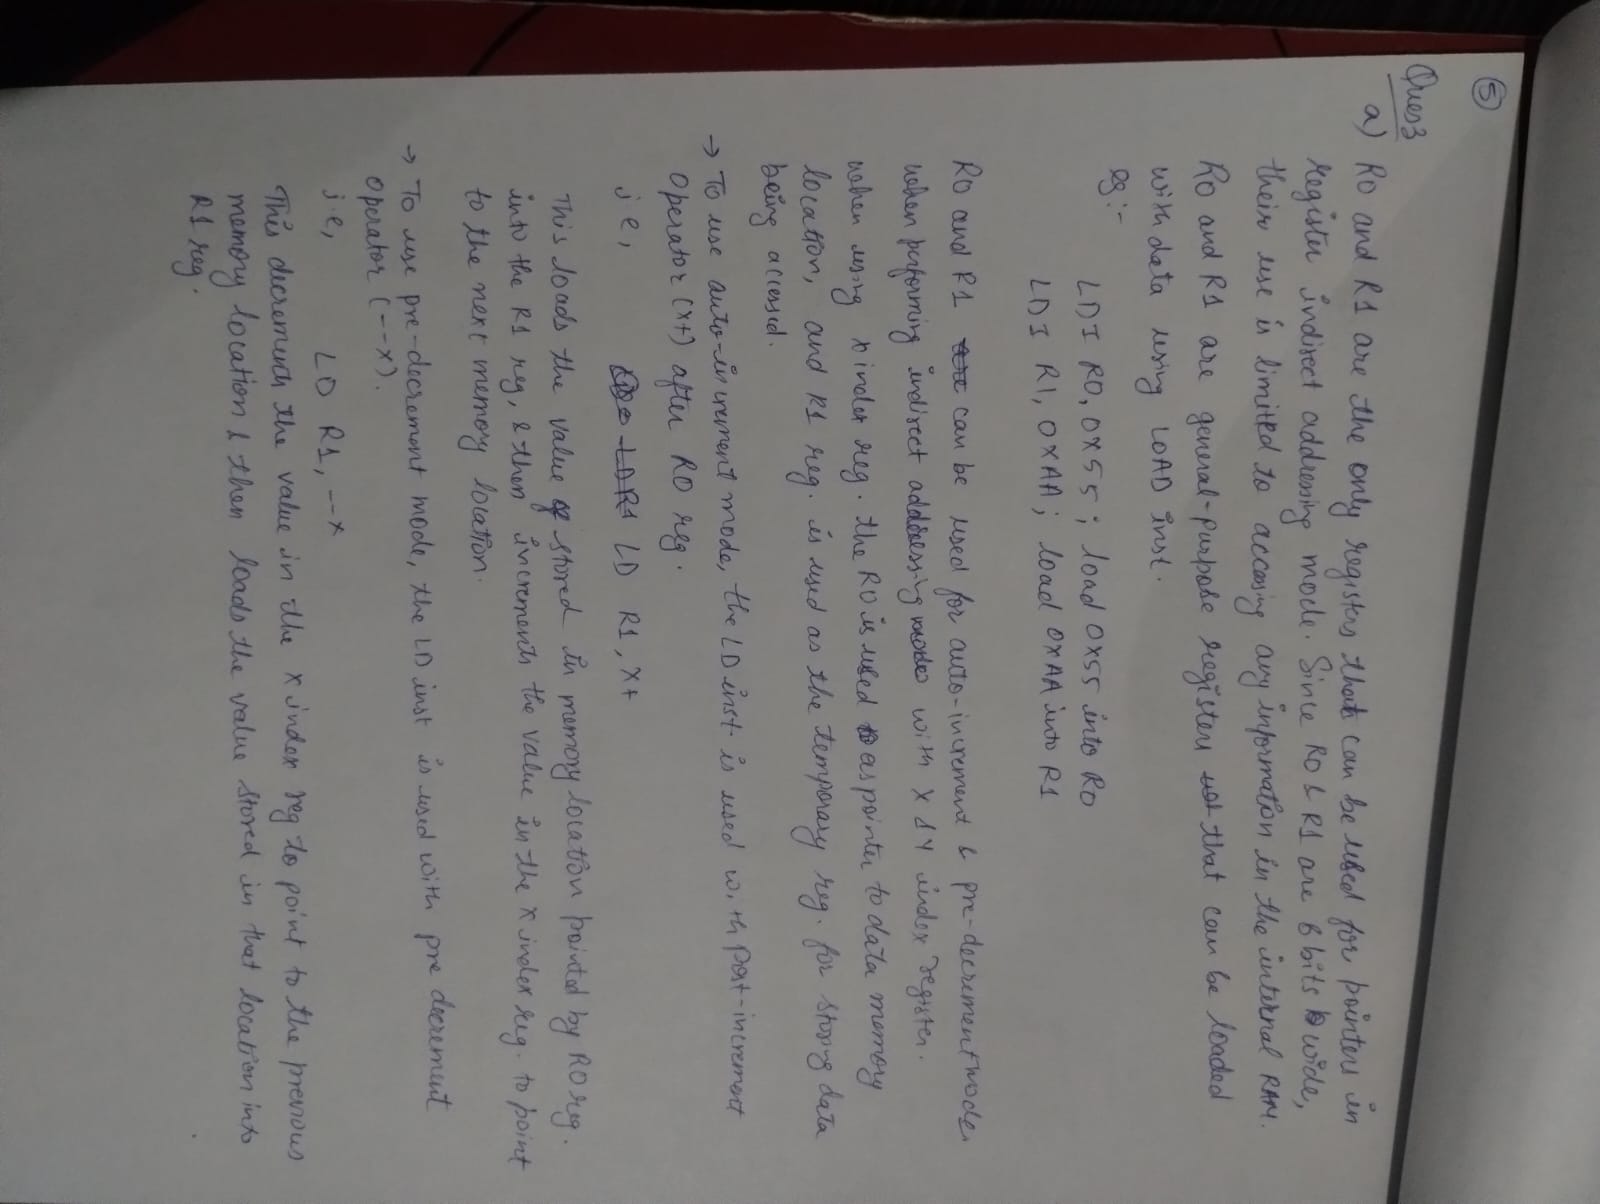 5
Ques 3
a) R0 and R1 are the only registers that can be used for pointers in
register indirect addressing mode. Since R0 & R1 are 8 bits wide,
their use is limited to accesing any information in the internal RAM.
R0 and R1 are general-purpose registers that can be loaded
with data using LOAD inst.
eg:-
LDI R0, 0X55; load 0X55 into R0
LDI R1, 0XAA; load 0XAA into R1
R0 and R1 can be used for auto-increment & pre-decrement mode
when performing indirect addressing modes with X & Y index register.
when using X index reg. the R0 is used as pointer to data memory
location, and R1 reg. is used as the temporary reg. for storing data
being accessed.
→ To use auto-increment mode, the LD inst is used with post-increment
operator (X+) after R0 reg.
ie, LD R1, X+
This loads the value stored in memory location pointed by R0 reg.
into the R1 reg, & then increments the value in the X index reg. to point
to the next memory location.
→ To use pre-decrement mode, the LD inst is used with pre decrement
operator (--X).
i.e, LD R1, --X
This decrements the value in the X index reg to point to the previous
memory location & then loads the value stored in that location into
R1 reg.